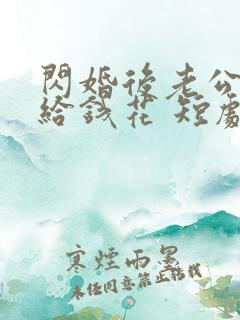 閃婚後老公
給錢花 短劇
寒煙雨墨
未任同意禁止轉載